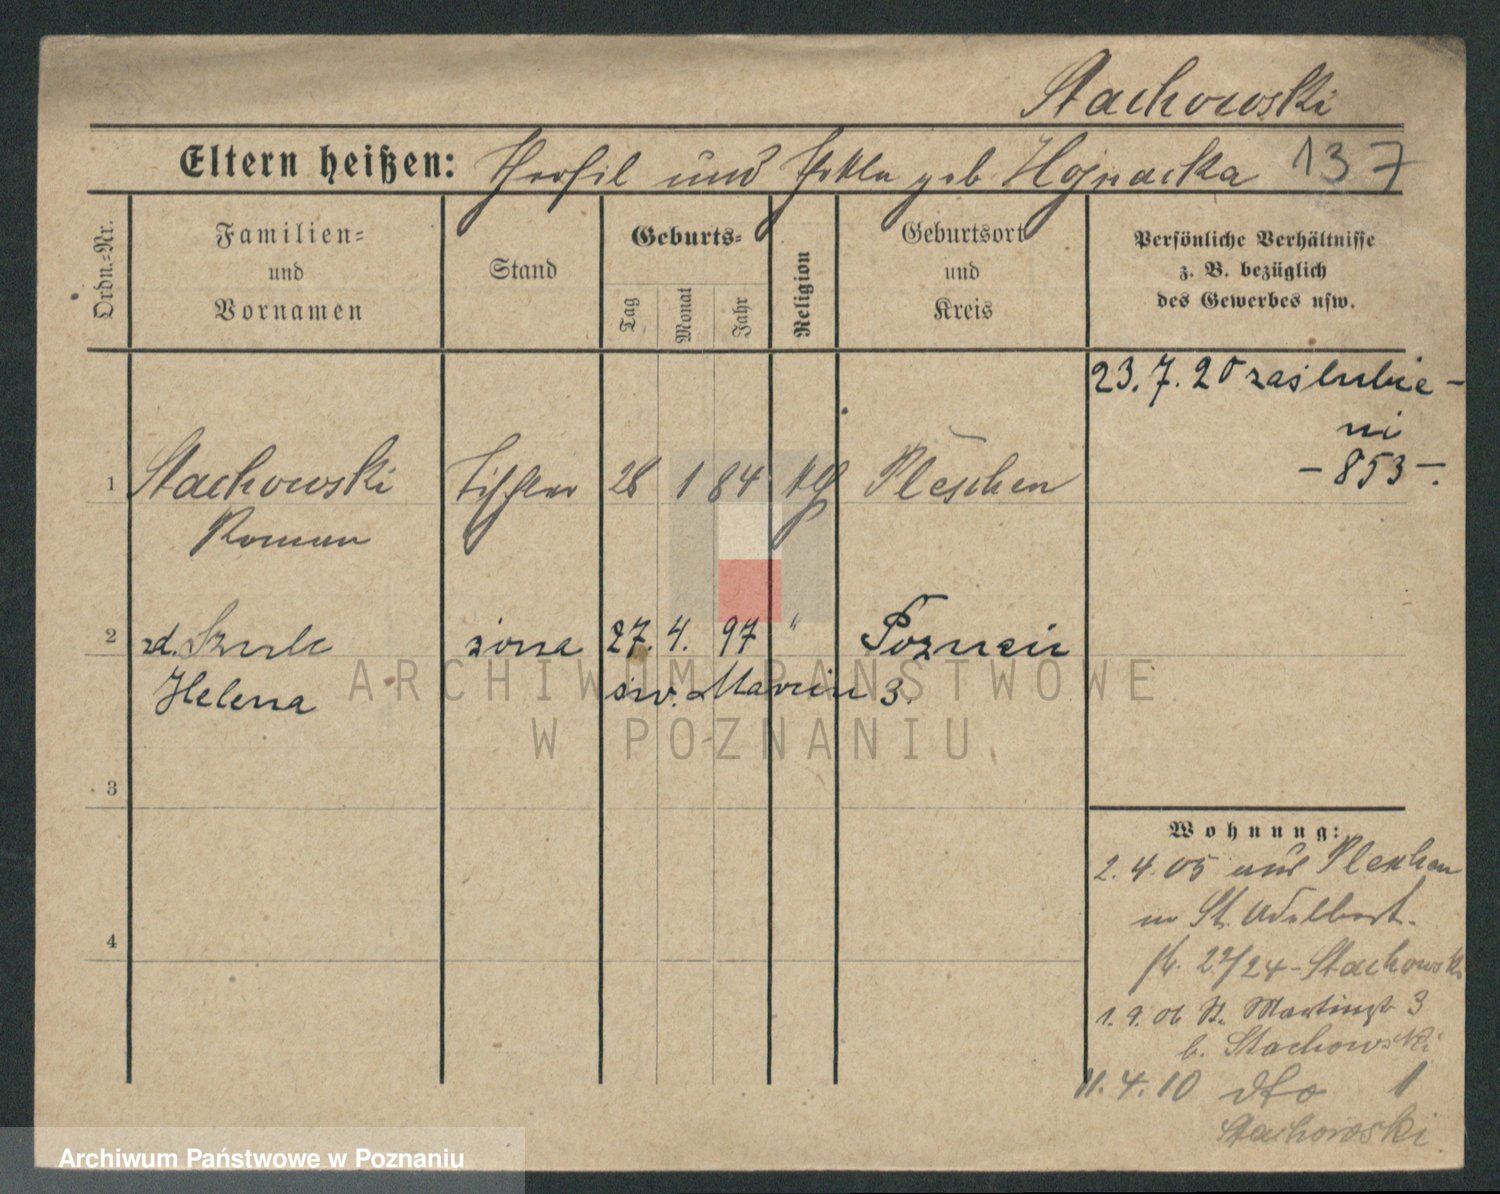 Stachowski
Eltern heißen: Theofil und Thekla geb Hojnacka 137
Ordn.=Nr.
Familien=
und
Vornamen
Stand
Geburts=
Tag
Monat
Jahr
Religion
Geburtsort
und
Kreis
Persönliche Verhältnisse
z. B. bezüglich
des Gewerbes usw.
23. 7. 20 zaślubie-
ni
- 853 -.
1 Stachowski Tischler 28 1 84 kth Pleschen
Roman
2 zd. Szulc żona 27. 4. 97 " Poznań
Helena św. Marcin 3.
3
4
Wohnung:
2. 4. 05 aus Pleschen
n St. Adalbert-
str. 23/24 - Stachowski
1. 9. 06 St. Martinstr 3
b. Stachowski
11. 4. 10 dto 1
Stachowski
ARCHIWUM PAŃSTWOWE
W POZNANIU
Archiwum Państwowe w Poznaniu